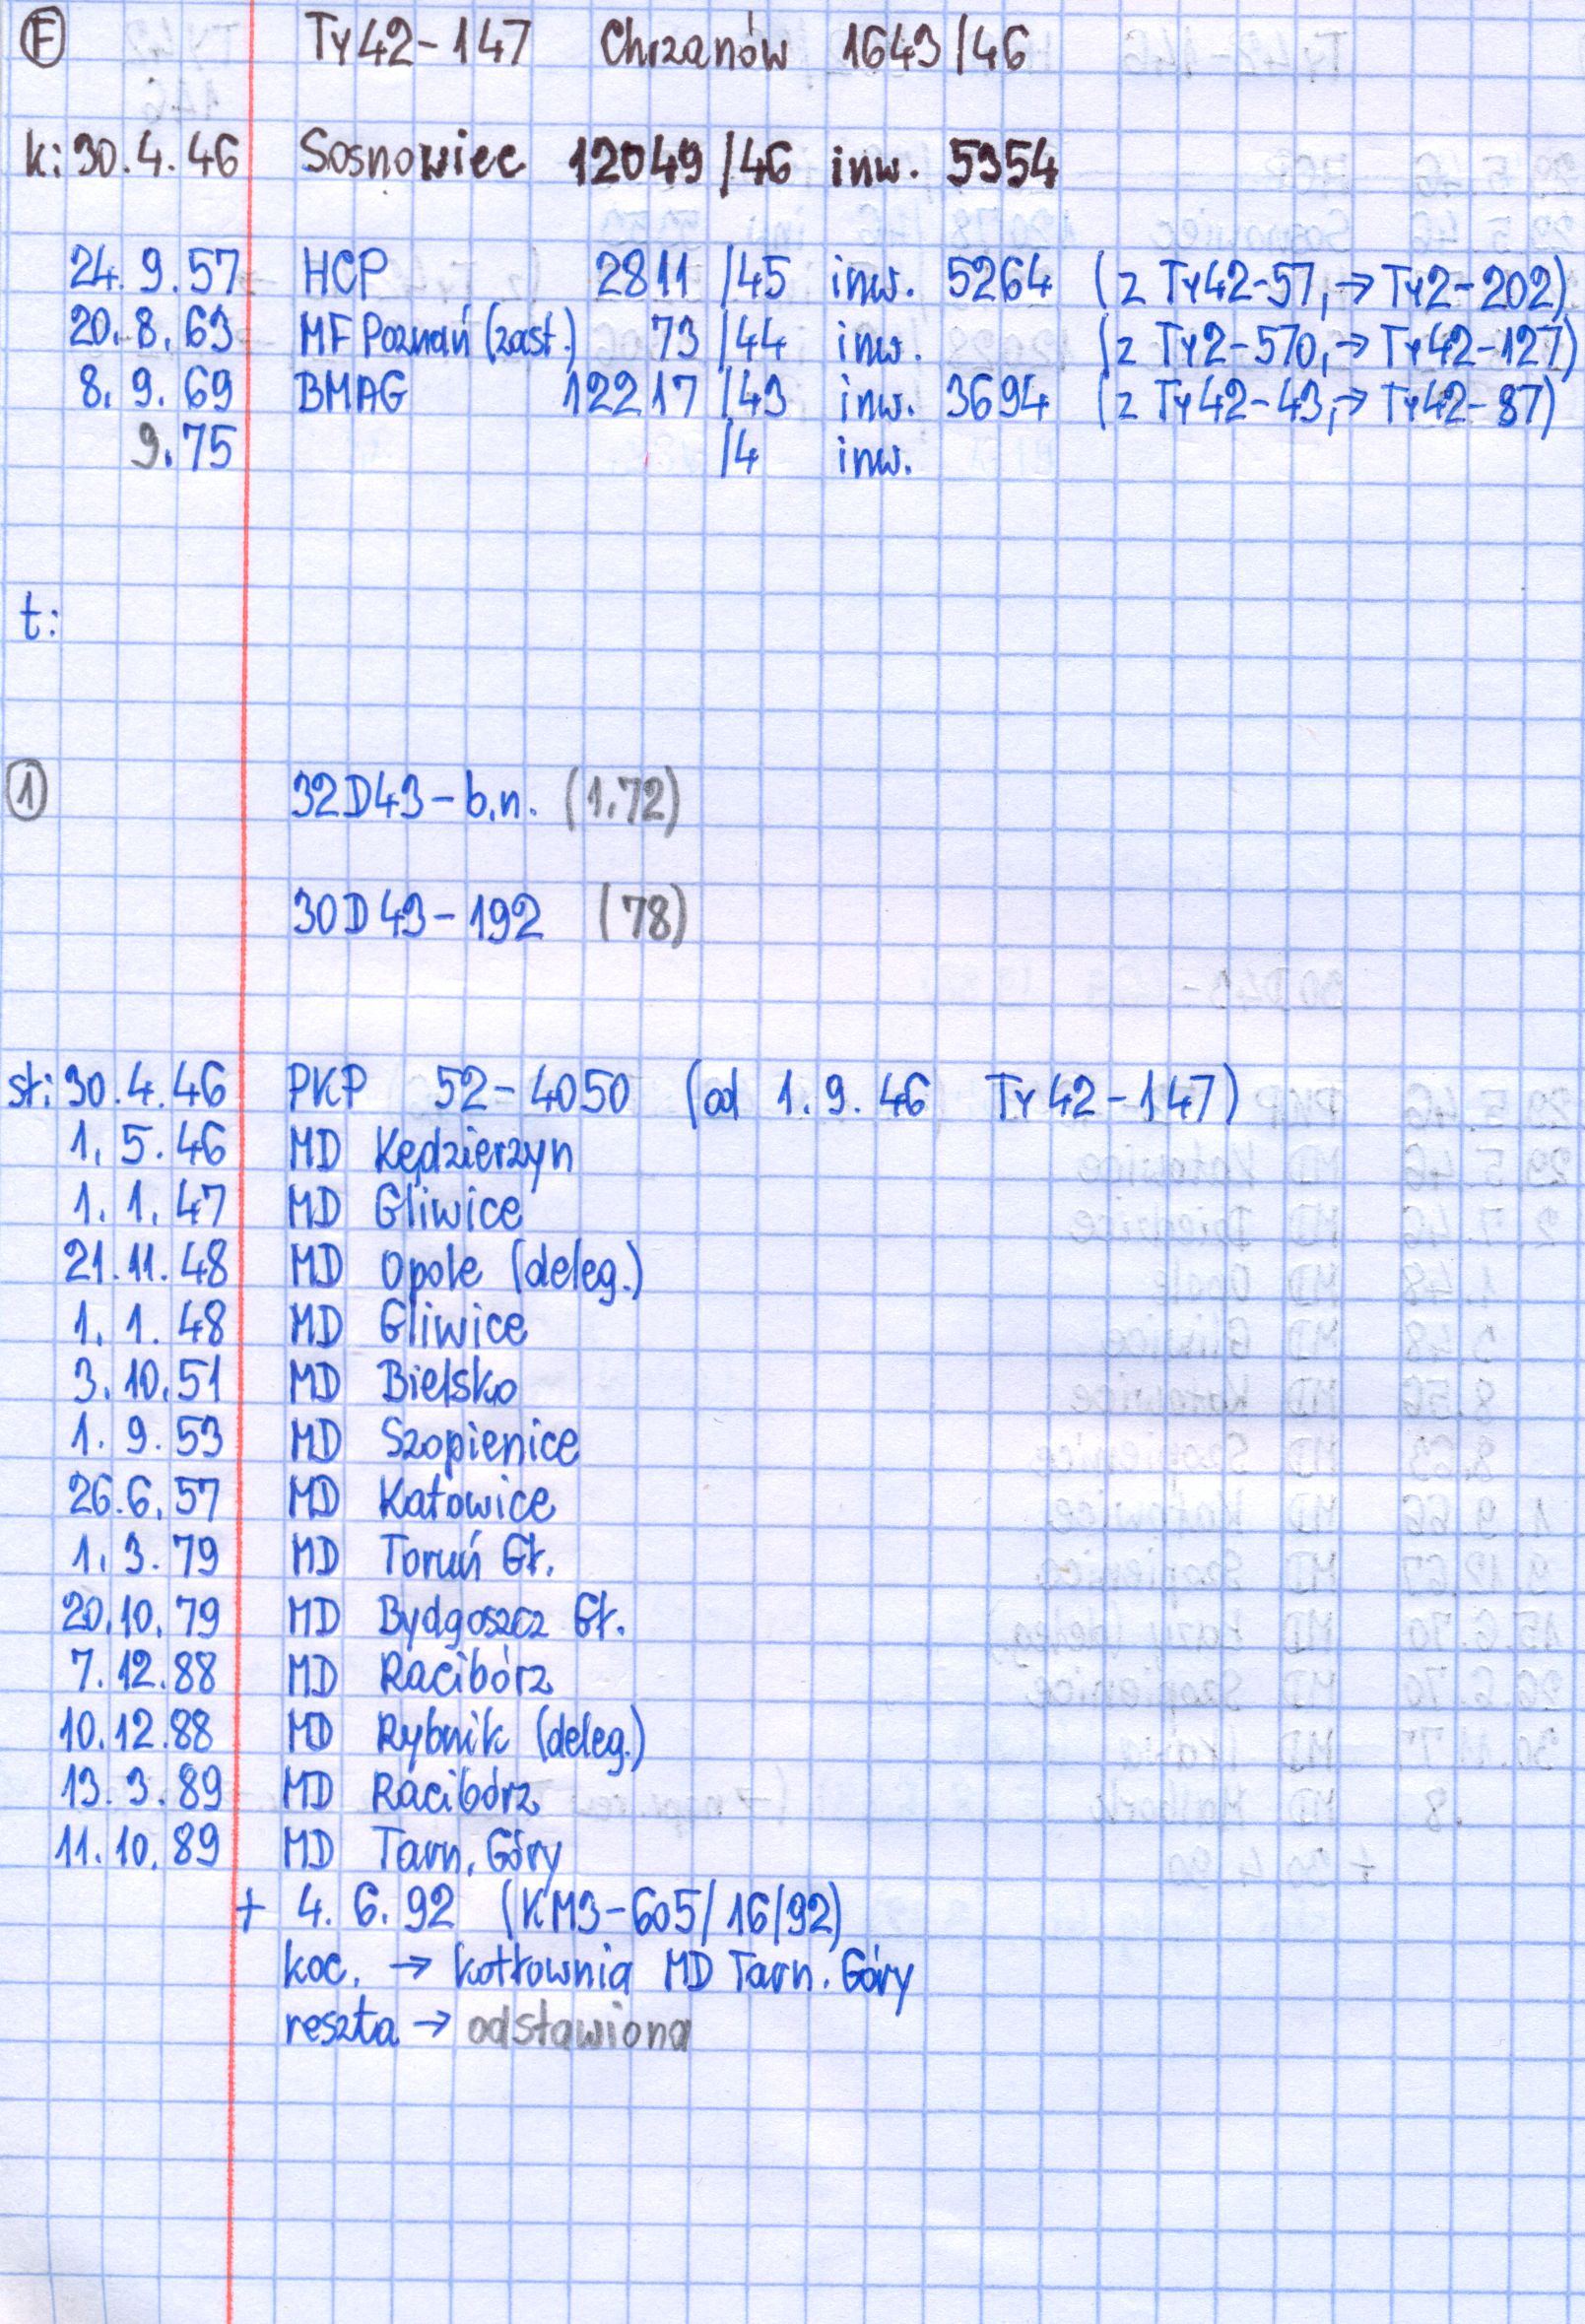 F Ty42-147 Chrzanów 1643/46
k: 30.4.46 Sosnowiec 12049/46 inw. 5354
24.9.57 HCP 2811/45 inw. 5264 (z Ty42-57, → Ty2-202)
20.8.63 MF Poznań (zast.) 73/44 inw. (z Ty2-570, → Ty42-127)
8.9.69 BMAG 12217/43 inw. 3694 (z Ty42-43, → Ty42-87)
9.75 /4 inw.
t:
1 32D43-b.n. (1.72)
30D43-192 (78)
st: 30.4.46 PKP 52-4050 (od 1.9.46 Ty42-147)
1.5.46 MD Kędzierzyn
1.1.47 MD Gliwice
21.11.48 MD Opole (deleg.)
1.1.48 MD Gliwice
3.10.51 MD Bielsko
1.9.53 MD Szopienice
26.6.57 MD Katowice
1.3.79 MD Toruń Gł.
20.10.79 MD Bydgoszcz Gł.
7.12.88 MD Racibórz
10.12.88 MD Rybnik (deleg.)
13.3.89 MD Racibórz
11.10.89 MD Tarn. Góry
+ 4.6.92 (KM3-605/16/92)
koc. → kotłownia MD Tarn. Góry
reszta → odstawiona